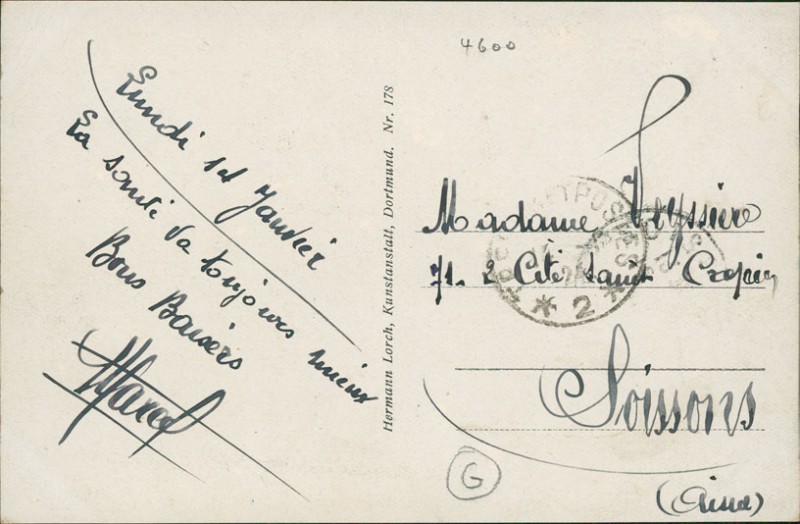 4600
Lundi 14 Janvier
La santé va toujours mieux
Bons Baisers
Marcel
Hermann Lorch, Kunstanstatt, Dortmund. Nr. 178
Madame Teyssière
71. 2 Cité Saint Crépin
Soissons
(Aisne)
* * 2 *
G